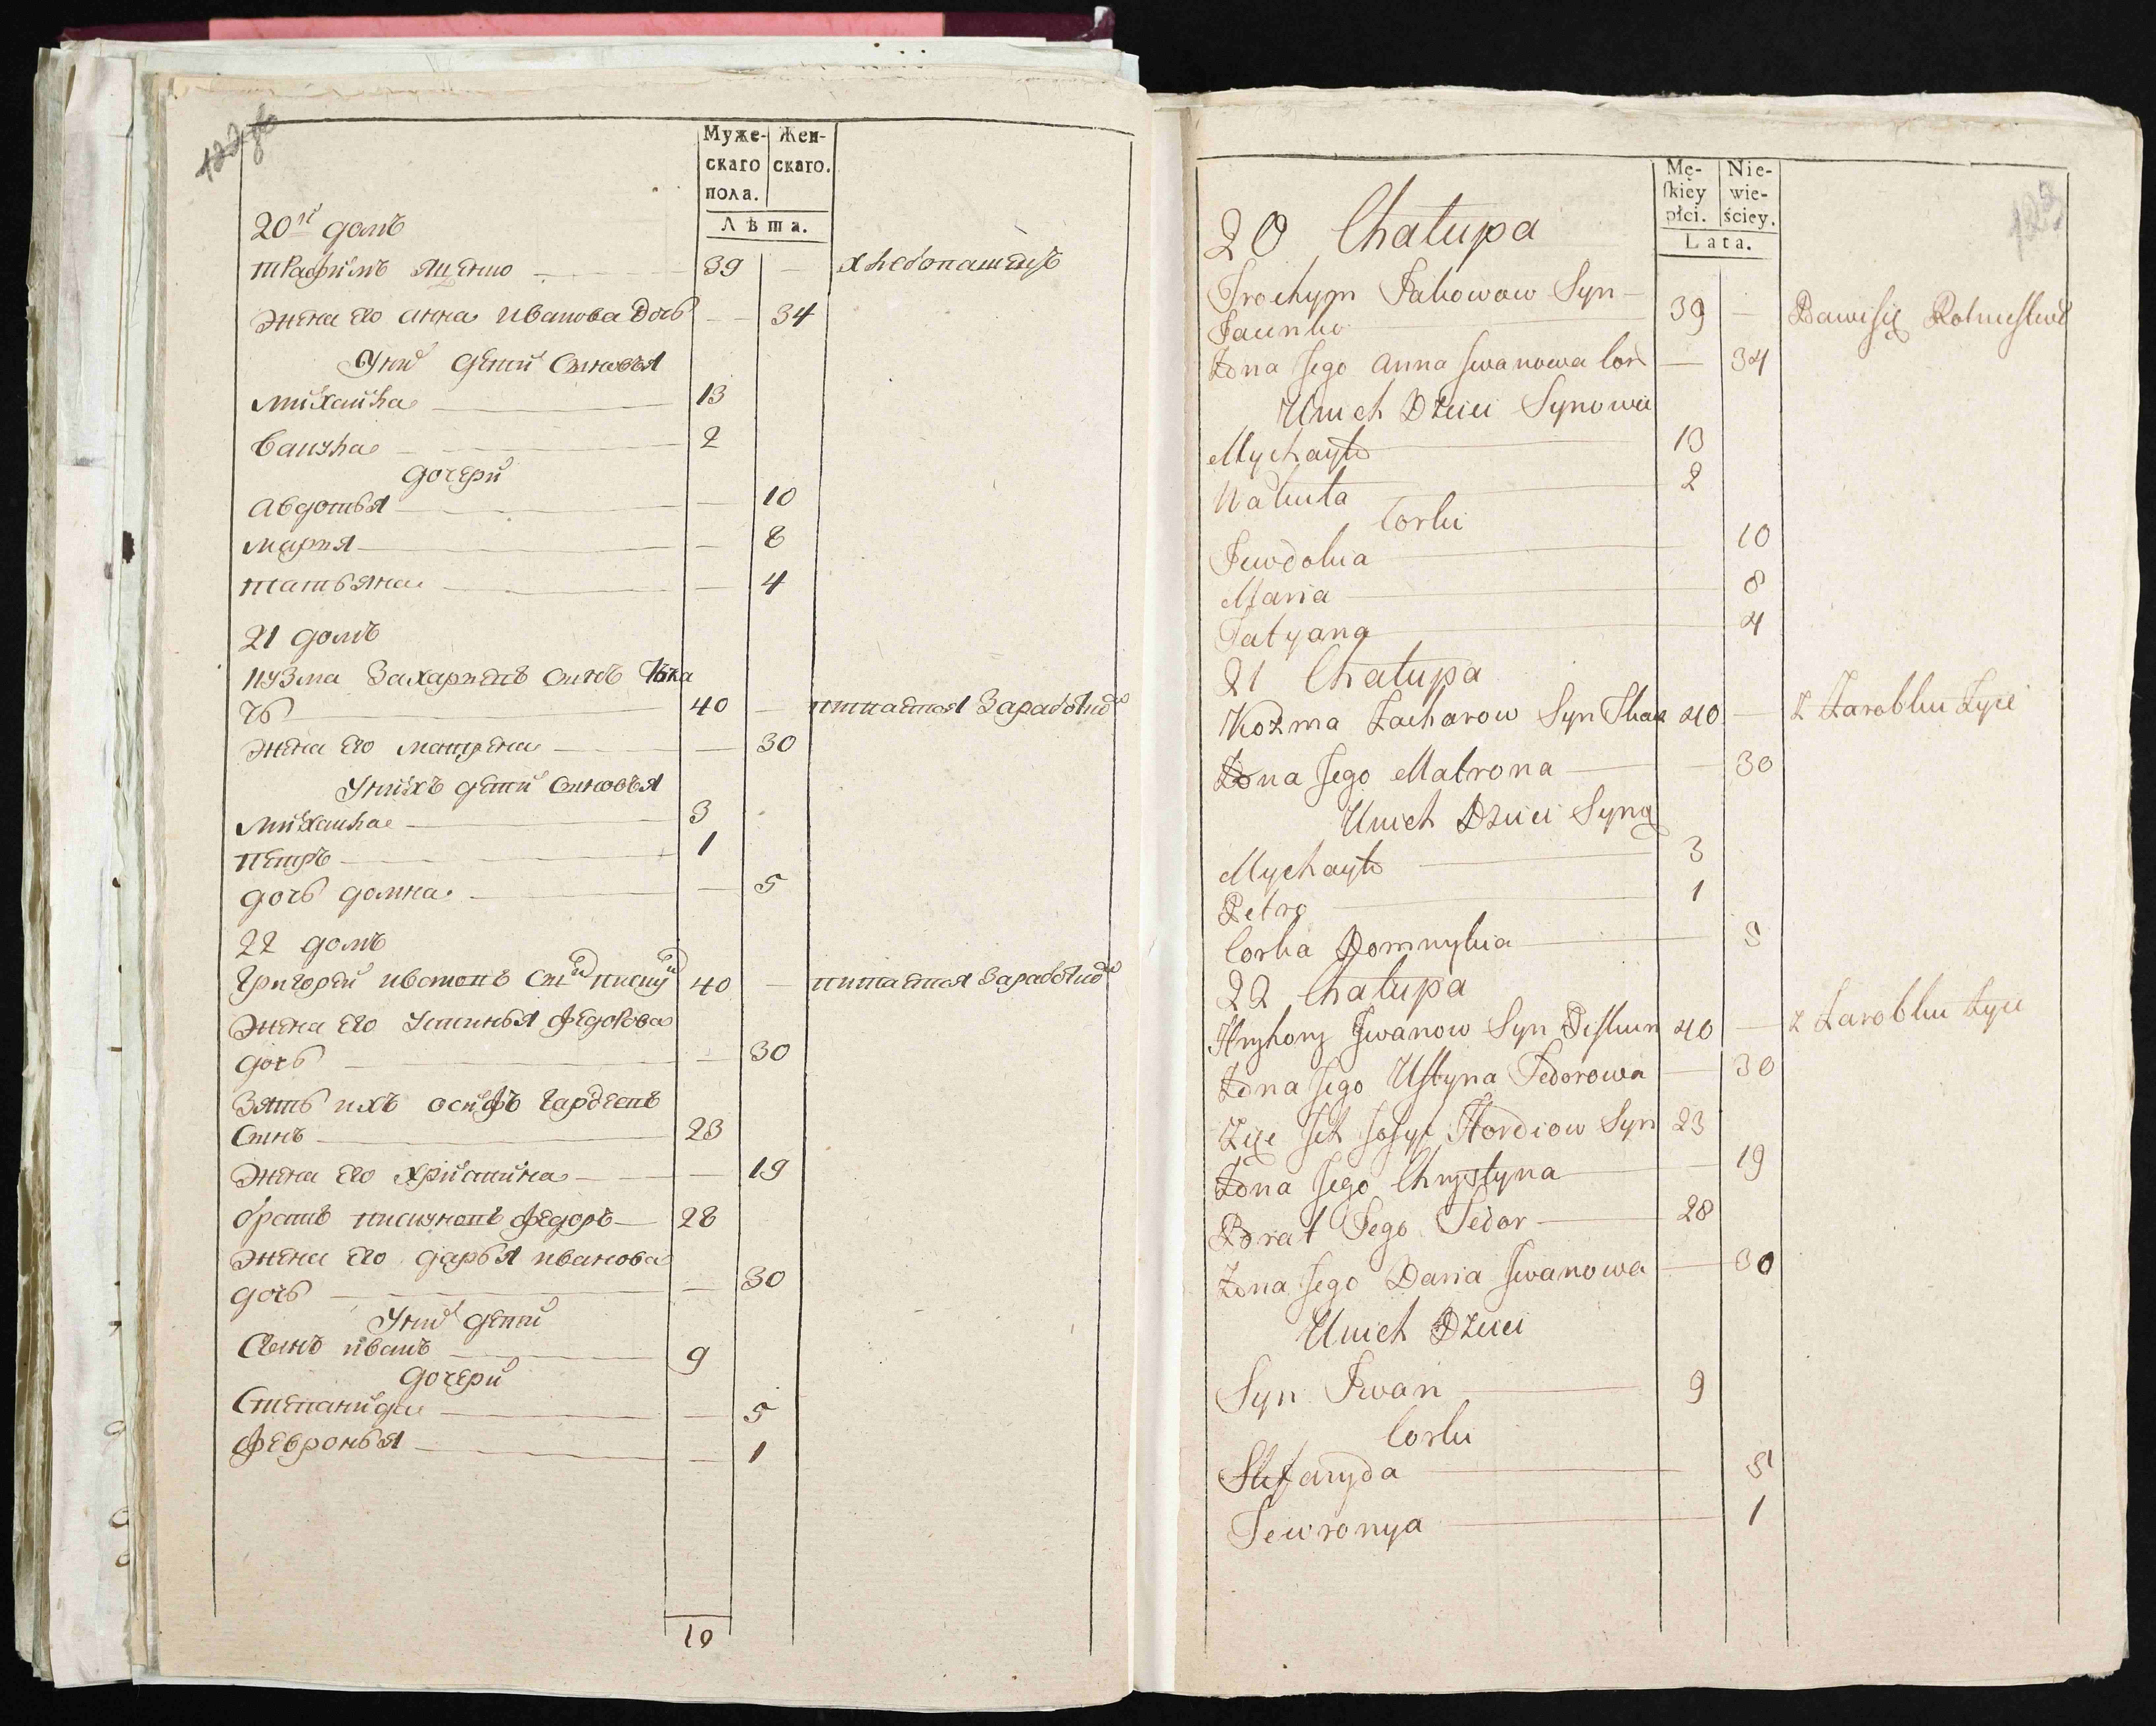 122 об
Муже- Жен-
скаго скаго.
пола.
Лѣта.
20й домъ
Трафимъ Яценко 39 — хлебопашецъ
жена его анна Иванова дочь — 34
У них дети Сыновья
михайла 13
Вакула 2
дочери
Авдотья — 10
мария — 8
татьяна — 4
21 домъ
кузма Захариевъ сынъ Тка
чь 40 — питается Заработкио
жена его матрена — 30
У нихъ дети Сыновья
Михайла 3
петръ 1
дочь домна — 5
22 домъ
Григорей ивановъ сынъ пискун 40 — питается Заработкио
жена его устинья федорова
дочь — 30
Зять ихъ осифъ гардеевъ
Сынъ 23
жена его христина — 19
братъ пискуновъ федоръ 28
жена его дарья иванова
дочь — 30
У них дети
Сынъ иванъ 9
дочери
Степанида — 5
февронья — 1
10
Mę- Nie-
skiey wie-
płci. ściey.
Lata.
123
20 Chałupa
Trochym Jakowow Syn
Jacenko 39 — Bawi się Rolnictwem
Żona Jego Anna Jwanowa Cor — 34
U nich Dzieci Synowie
Mychayło 13
Wakuła 2
Corki
Jewdokia 10
Maria 8
Tatyana 4
21 Chałupa
Kozma Zacharow Syn Tkacz 40 — Z Zarobku żyie
Żona Jego Matrona — 30
U nich Dzieci Syny
Mychayło 3
Petro 1
Corka Domnykia 5
22 Chałupa
Hryhory Jwanow Syn Piskun 40 — z Zarobku żyie
Żona Jego Ustyna Fedorowa — 30
Zięć Jch Josyf Hordiow Syn 23
Żona Jego Chrystyna — 19
Brat Jego Fedor 28
Żona Jego Daria Jwanowa — 30
U nich Dzieci
Syn Jwan 9
Corki
Stefanyda 5
Fewronya 1